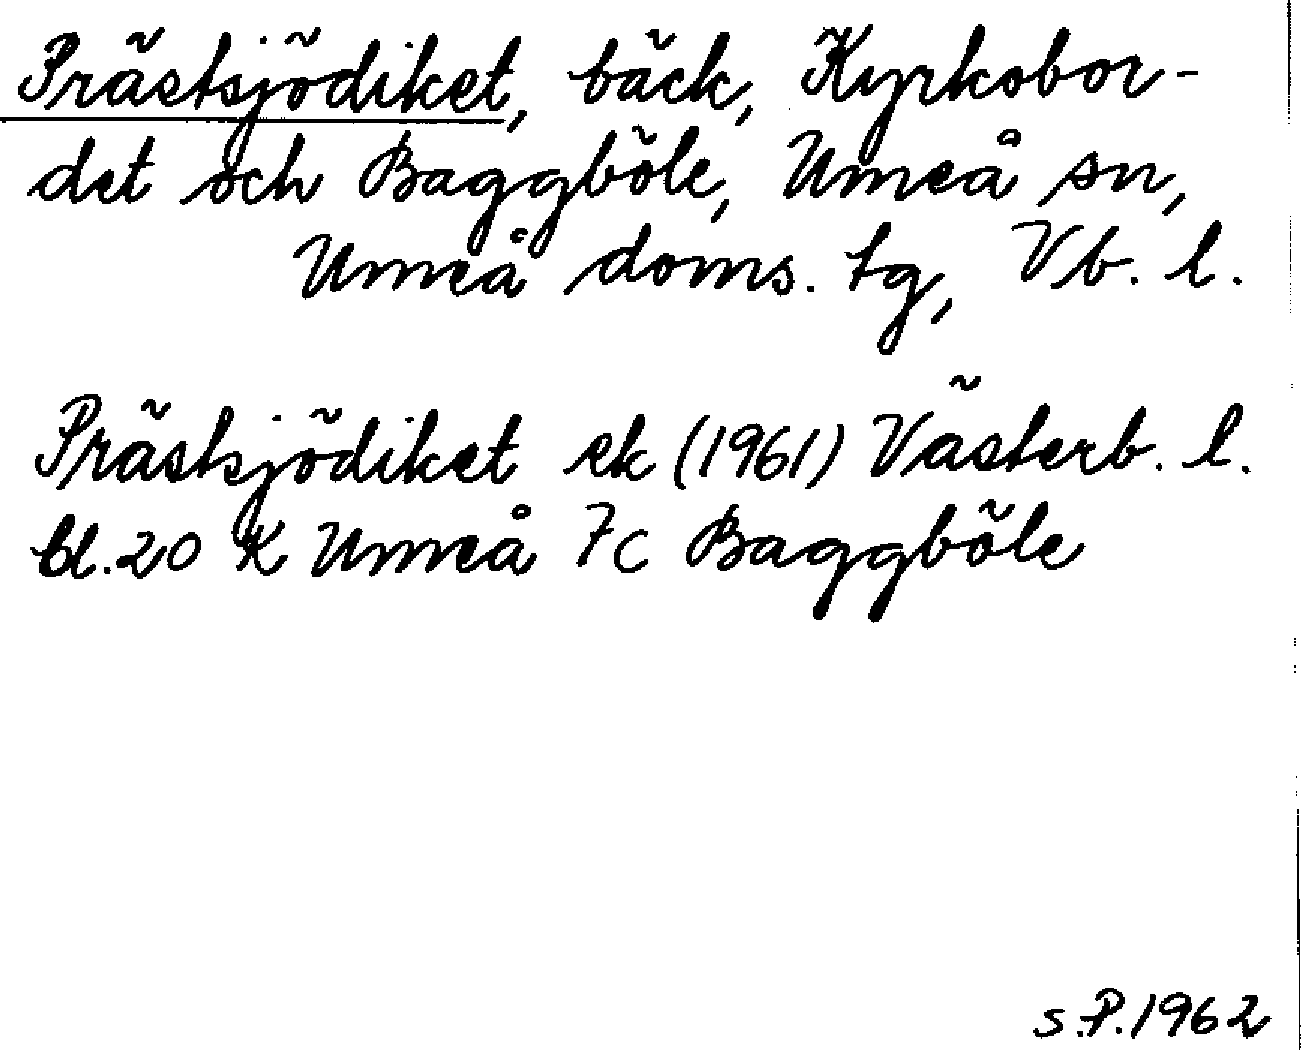 Prästsjödiket, bäck, Kyrkobor-
det och Baggböle, Umeå sn,
Umeå doms. tg, Vb. l.
Prästsjödiket ek (1961) Västerb. l.
bl. 20 K Umeå 7c Baggböle
S.P. 1962